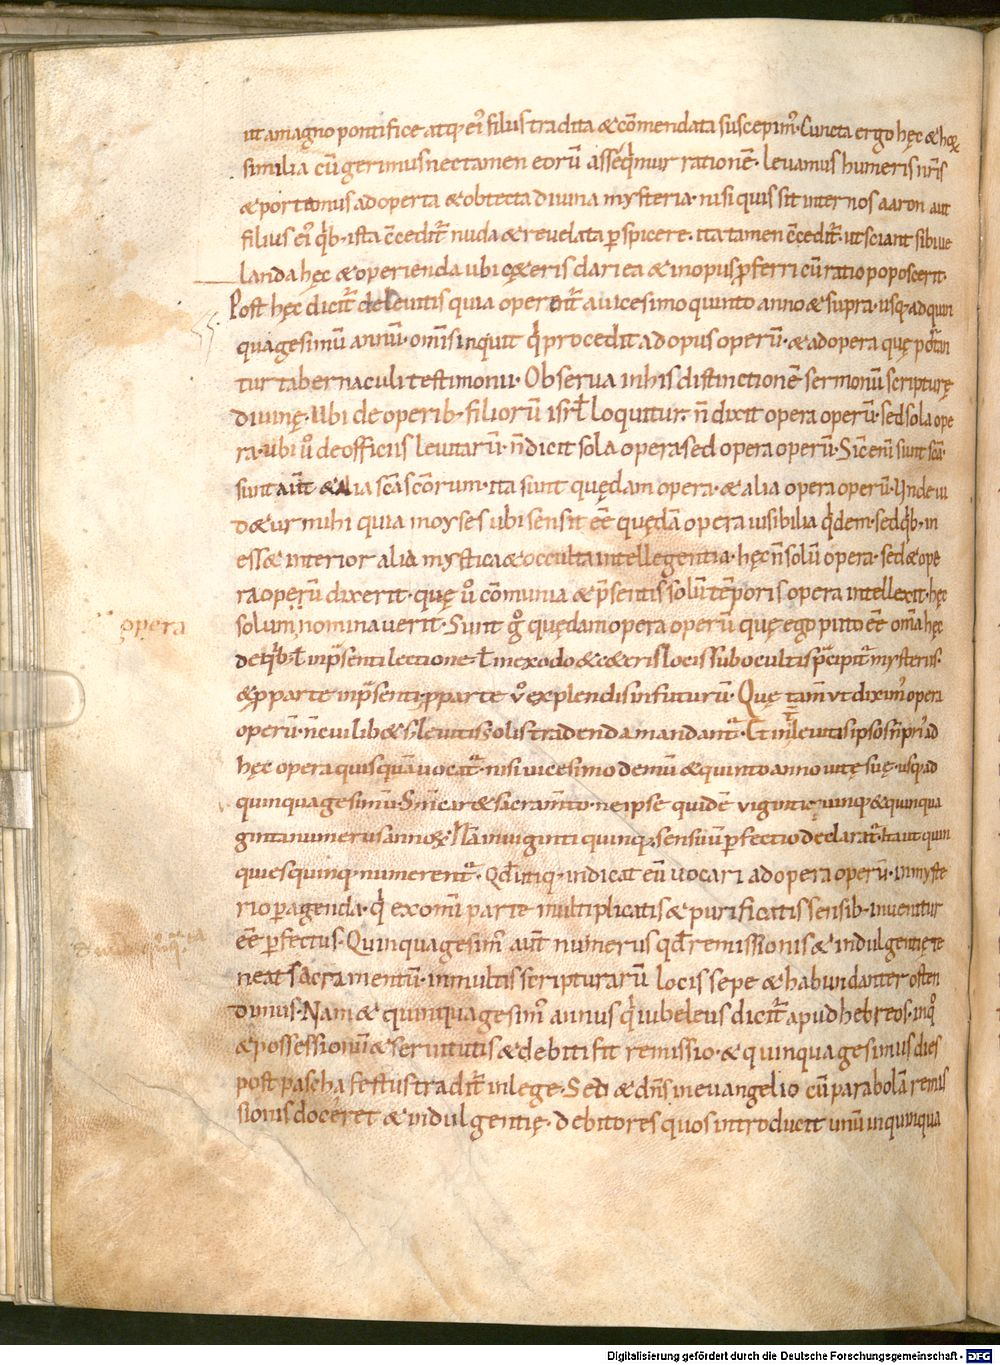 ut a magno pontifice atq; ei᾽ filiis tradita & cōmendata suscepim᾽. Cuncta ergo hęc & hoꝝ
similia cū gerimus nec tamen eorū assēq̇mur rationē. levamus humeris nr̄is
& portamus adoperta & obtecta divina mysteria. nisi quis sit inter nos aaron aut
filius ei᾽ q̇b; ista c̄cedit̄ nuda & revelata p̱spicere. ita tamen c̄cedit̄. ut sciant sibi ve
landa hęc & operienda ubi
Post hęc dicit̄ de levitis quia operent̄ a vicesimo quinto anno & supra. usq; ad quin
quagesimū annū. omīs inquit q̇ procedit ad opus operū. & ad opera quę portan
tur tabernaculi testimonii. Observa in his distinctionē sermonū scripturę
divinę. Ubi de operib; filiorū isrł loquitur. n̄ dixit opera operū. sed sola ope
ra. ubi u᾽ de officiis levitarū. n̄ dicit sola opera sed opera operū. Sic enī sunt sc̄a.
sunt aūt & alia sc̄a sc̄orum. ita sunt quędam opera. & alia opera operū. Unde vi
d&ur mihi quia moyses ubi sensit ēē quędā opera visibilia q̇dem. sed q̇b; in
ess& interior alia mystica & occulta intellegentia. hęc n̄ solū opera. sed & ope
ra operū dixerit. quę u᾽ cōmunia & p̄sentis solū tēporis opera intellexit. hęc
solum nominaverit. Sunt g᾽ quędam opera operū quę ego puto ēē om̄a hęc
de q̇b; ł in p̄senti lectione ł in exodo & c&eris locis sub ocultis p̄cipit᾽ mysteriis.
& p̱ parte in p̄senti. p̱ parte u᾽ explendis in futurū. Quę tam̄ ut dixim᾽ opera
operū. n̄
hęc opera quisquā vocat᾽. nisi vicesimo demū & quinto anno vitę suę. usq; ad
quinquagesimū.
ginta numerus annoꝝ. Nam viginti quinq; sensuū p̱fectio declarat᾽. Ita ut quin
quies quinq; numerent᾽. Qd̄ utiq; indicat eū vocari ad opera operū. in myste
rio p̱ agenda. q̇ ex omī parte multiplicatis & purificatis sensib; invenitur
ēē p̱fectus. Quinquagesim᾽ aūt numerus qd̄ remissionis & indulgentię te
neat sacramentū. in multis scripturarū locis sepe & habundanter osten
dimus. Nam & quinquagesim᾽ annus q̇ iubeleus dicit̄ apud hebreos. in q᾽
& possessionū & servitutis & debiti fit remissio. & quinquagesimus dies
post pascha festus tradit̄ in lege. Sed & dn̄s in evangelio cū parabolā remis
sionis doceret & indulgentię. debitores quos introducit unū in quinqua
opera
Digitalisierung gefördert durch die Deutsche Forschungsgemeinschaft - DFG